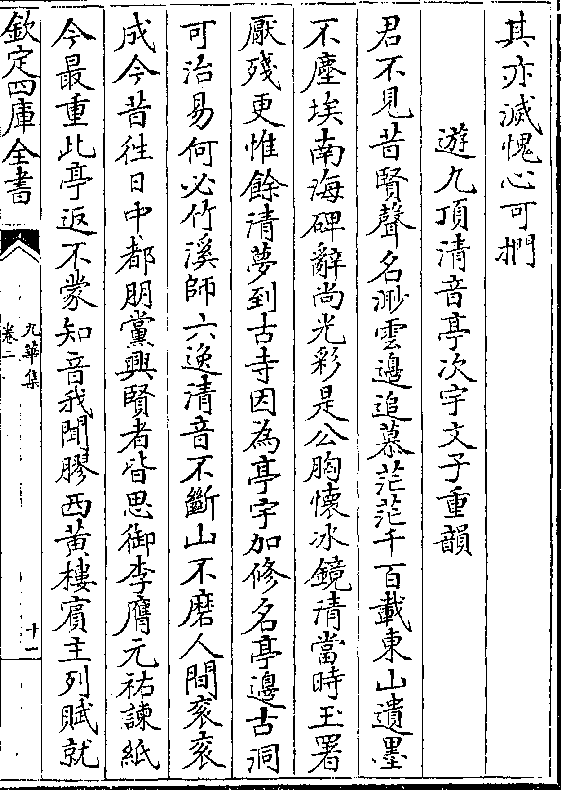 其亦滅愧心可捫
遊九頂清音亭次宇文子重韻
君不見昔賢聲名渺雲邊追慕茫茫千百載東山遺墨
不塵埃南海碑辭尚光彩是公胸懷冰鏡清當時玉署
厭殘更惟餘清夢到古寺因為亭宇加修名亭邊古洞
可治易何必竹溪師六逸清音不斷山不磨人間衮衮
成今昔徃日中都朋黨興賢者皆思御李膺元祐諫紙
今最重此亭返不蒙知音我聞膠西黄樓賓主列賦就
欽定四庫全書
九華集
卷二
十一